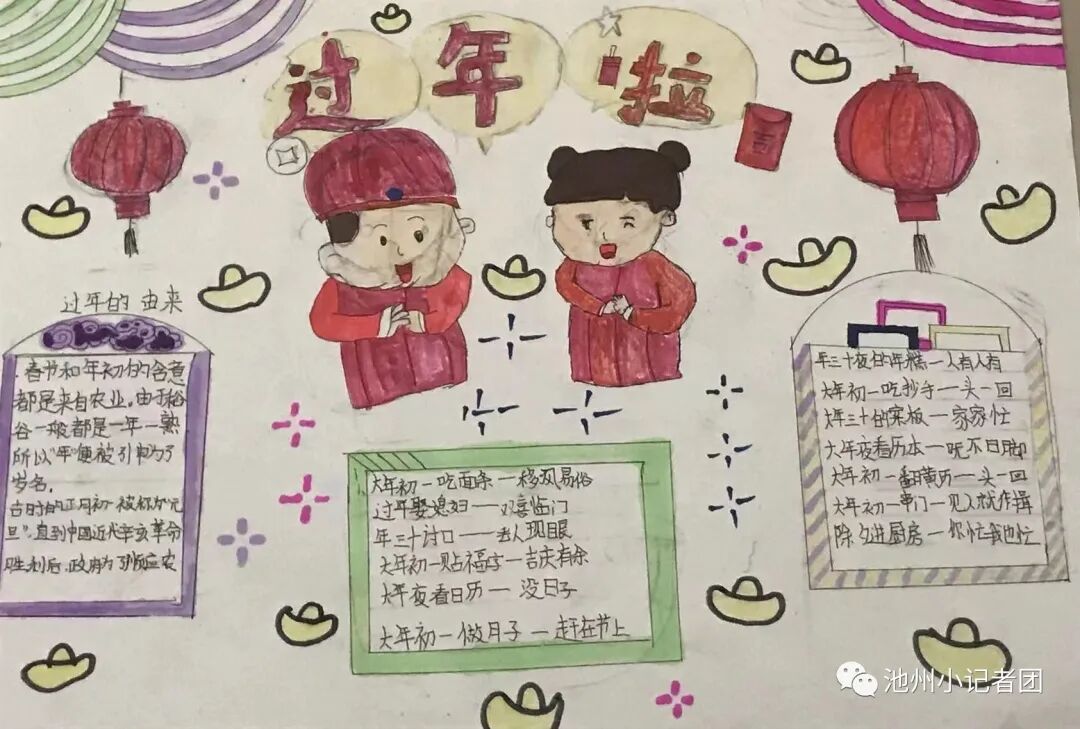 过年啦
吉
过年的 由来
春节和年初的含意
都是来自农业,由于稻
谷一般都是一年一熟
所以"年"便被引申为了
岁名,
古时的正月初一被称为"元
旦",直到中国近代辛亥革命
胜利后,政府为了顺应农
大年初一吃面条一移风易俗
过年娶媳妇——双喜临门
年三十讨口——丢人现眼
大年初一贴福字一吉庆有余
大年夜看日历— 没日子
大年初一做月子 — 赶在节上
年三十夜的年糕一人有人有
大年初一吃抄手一头一回
大年三十的案板一家家忙
大年夜看历本一明不日脚
大年初一翻黄历一头一回
大年初一串门一见人就作揖
除夕进厨房一你忙我也忙
池州小记者团